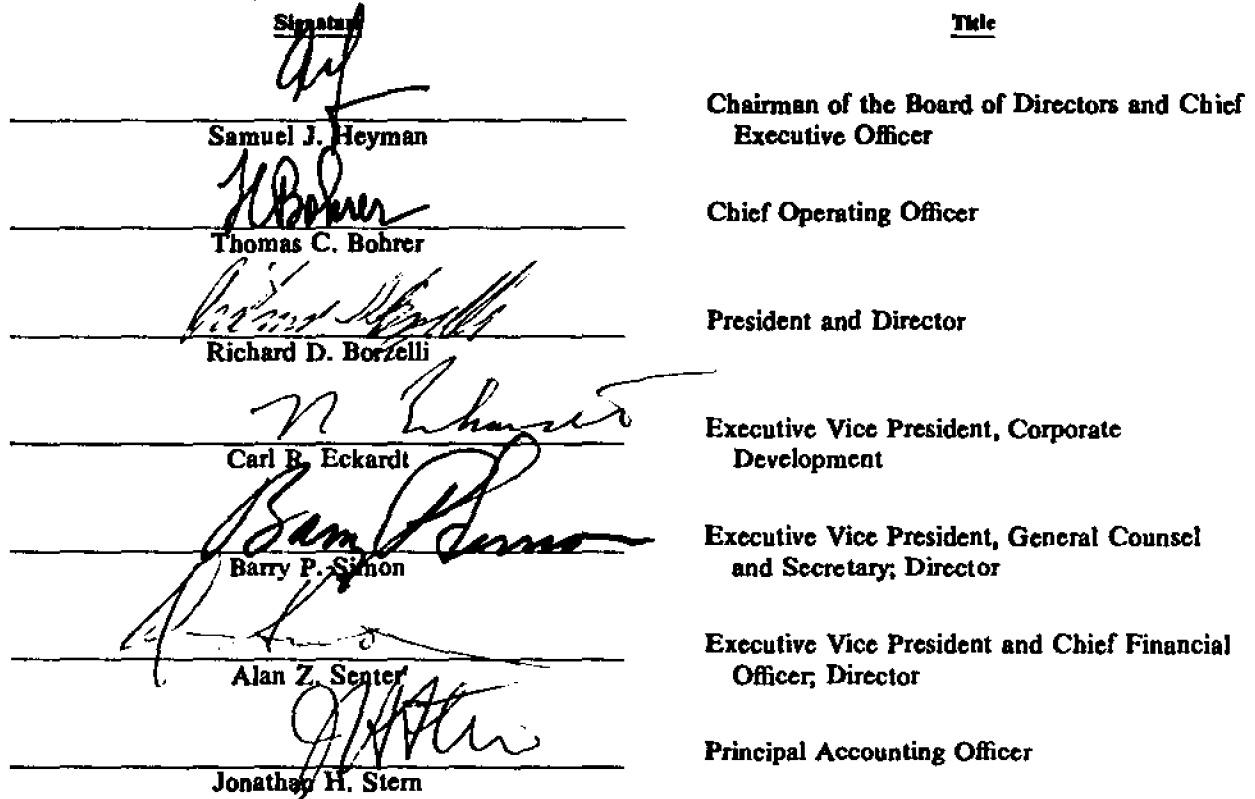 Signature Title
Samuel J. Heyman Chairman of the Board of Directors and Chief
Executive Officer
Thomas C. Bohrer Chief Operating Officer
Richard D. Borzelli President and Director
Carl R. Eckardt Executive Vice President, Corporate
Development
Barry P. Simon Executive Vice President, General Counsel
and Secretary; Director
Alan Z. Senter Executive Vice President and Chief Financial
Officer; Director
Jonathan H. Stern Principal Accounting Officer